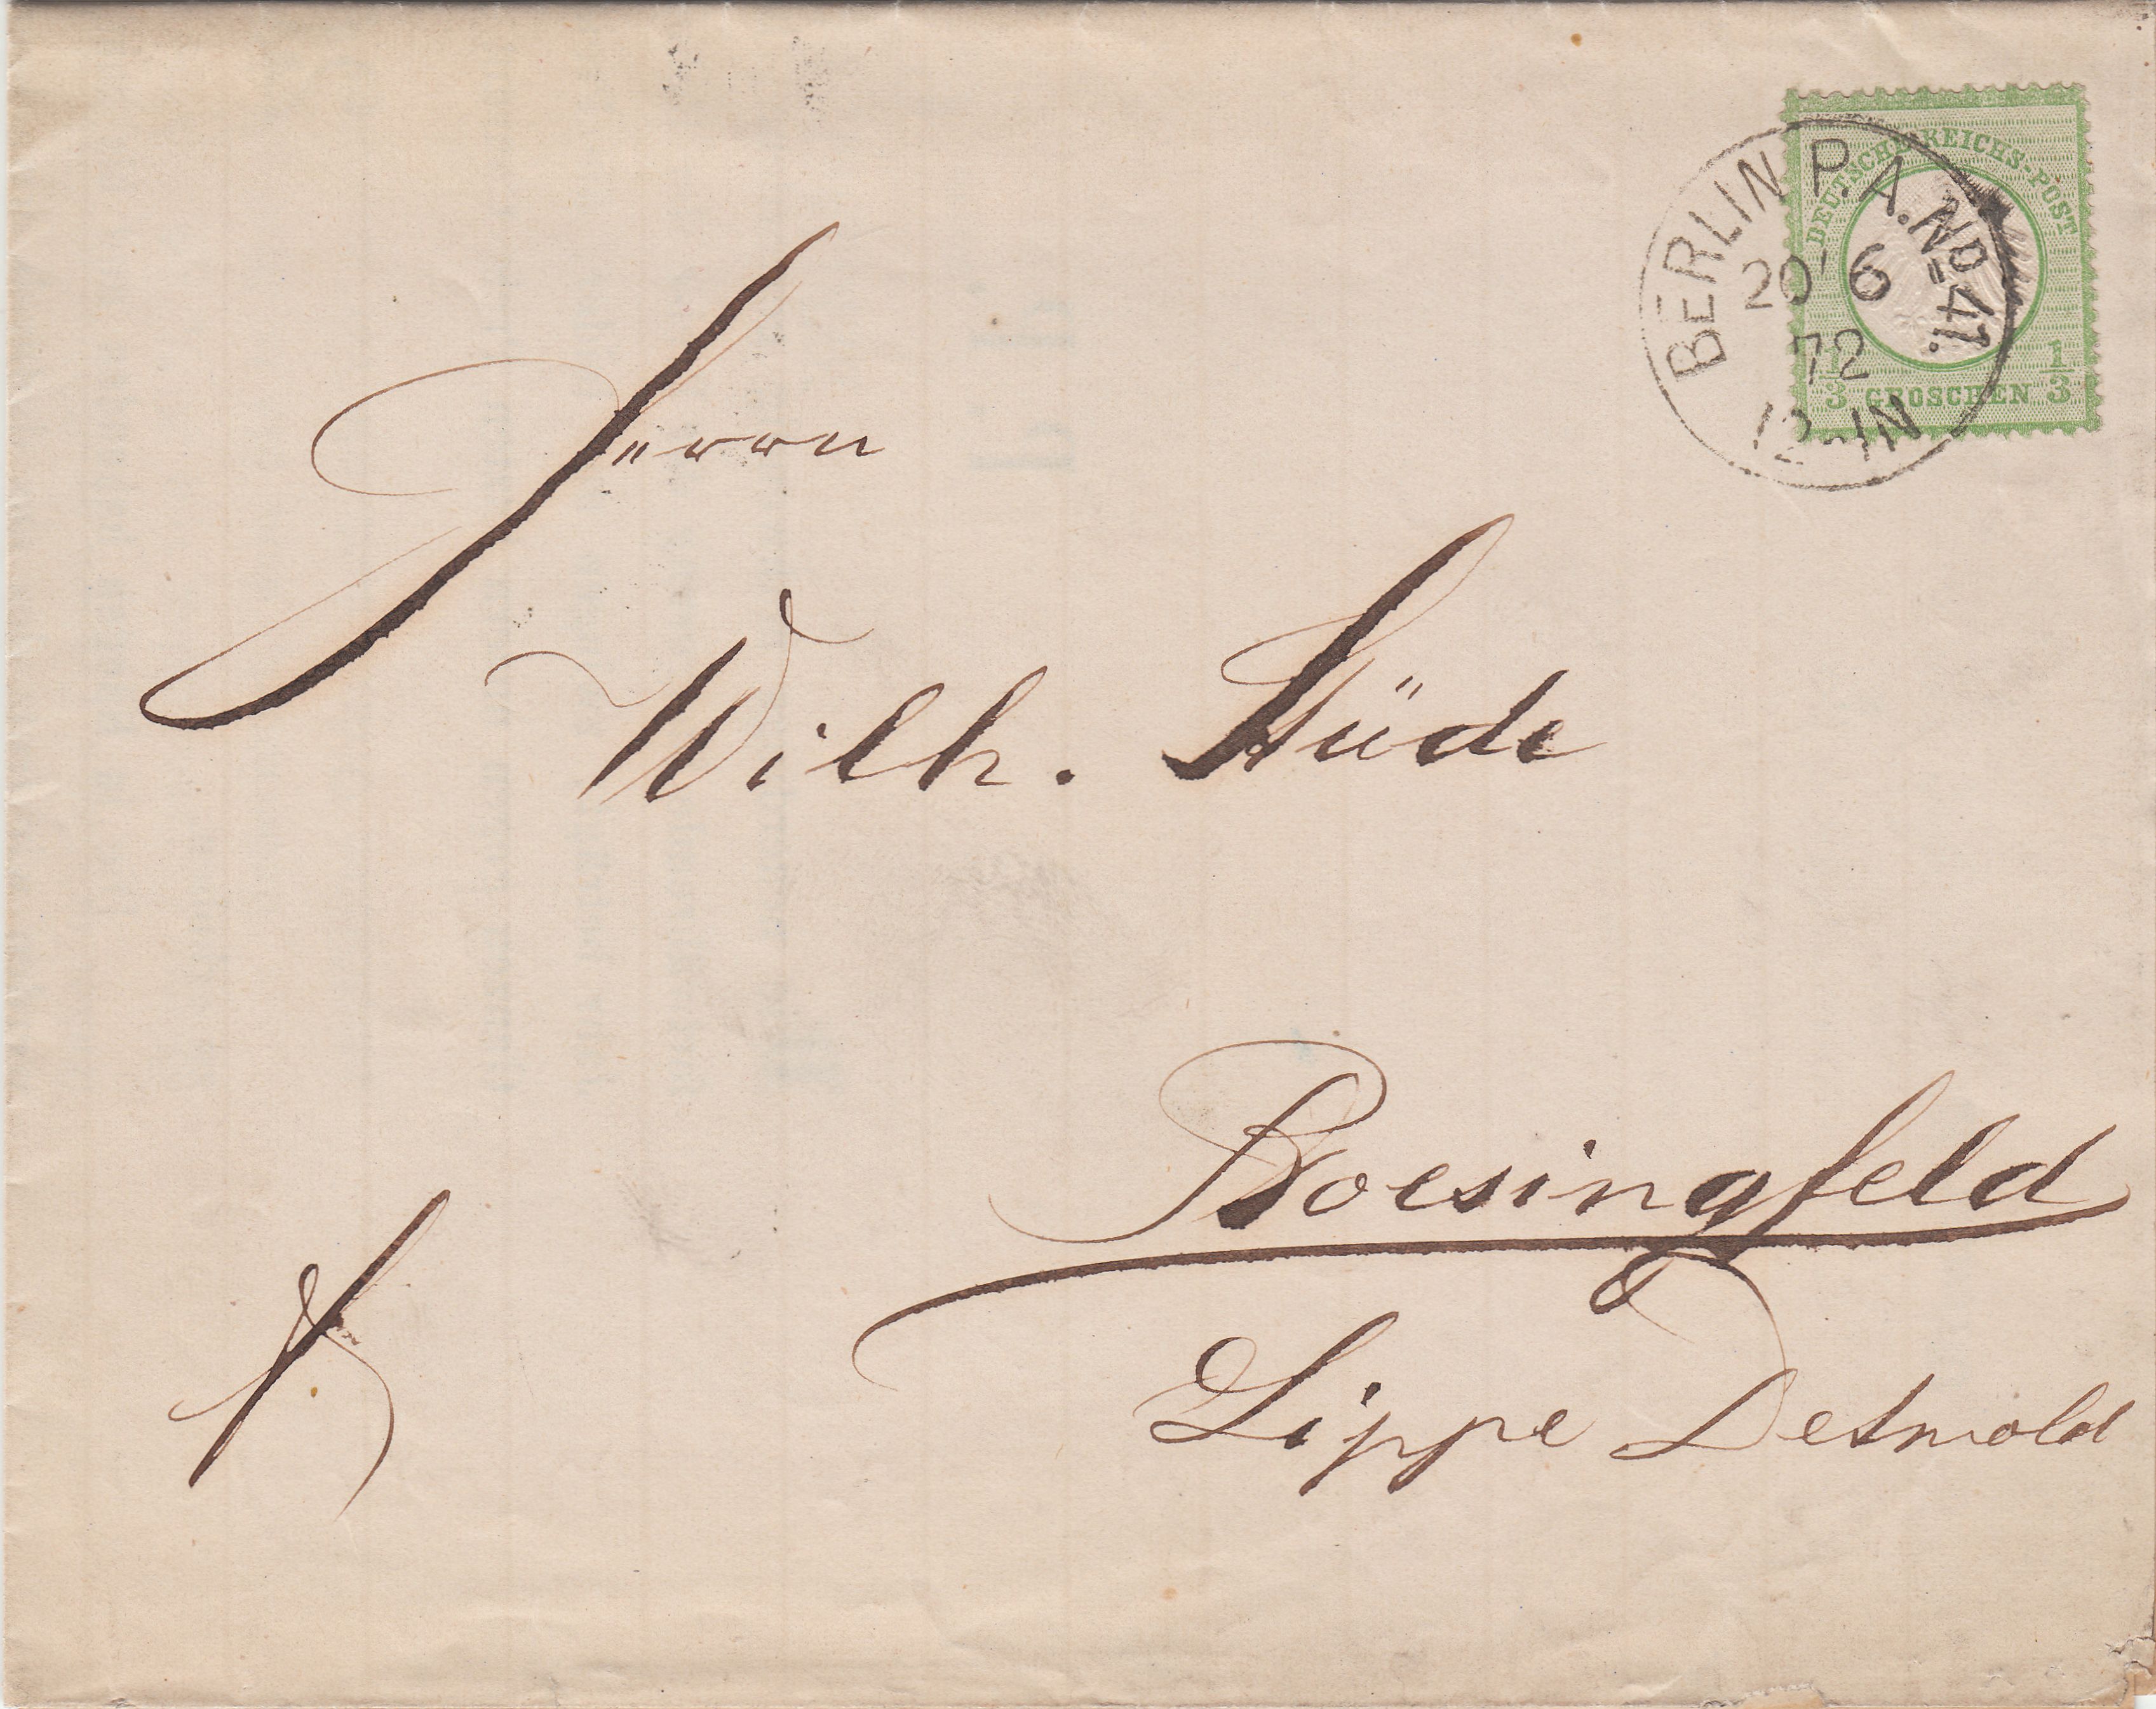 DEUTSCHE REICHS-POST
1/3 GROSCHEN 1/3
BERLIN P.A. Nº 41.
20 6
72
12-1N
Herrn
Wilh. Stüde
Boesingfeld
Lippe Detmold